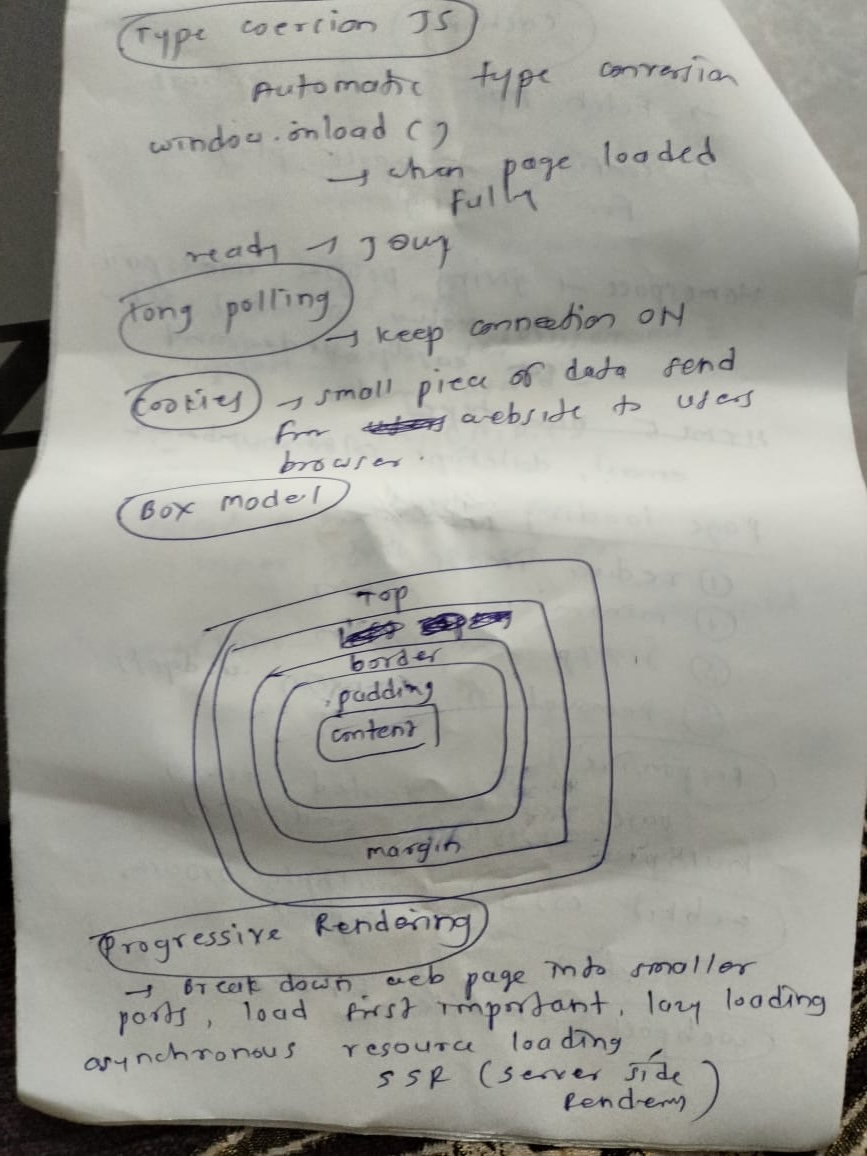 Type coercion JS
Automatic type conversion
window.onload ()
→ when page loaded
Fully
ready →
Long polling
→ keep connection ON
Cookies → small piece of data send
from website to users
browser.
Box model
Top
border
padding
content
margin
Progressive Rendering
→ Break down web page into smaller
parts, load first important, lazy loading
asynchronous resource loading
SSR (server side
Rendering)